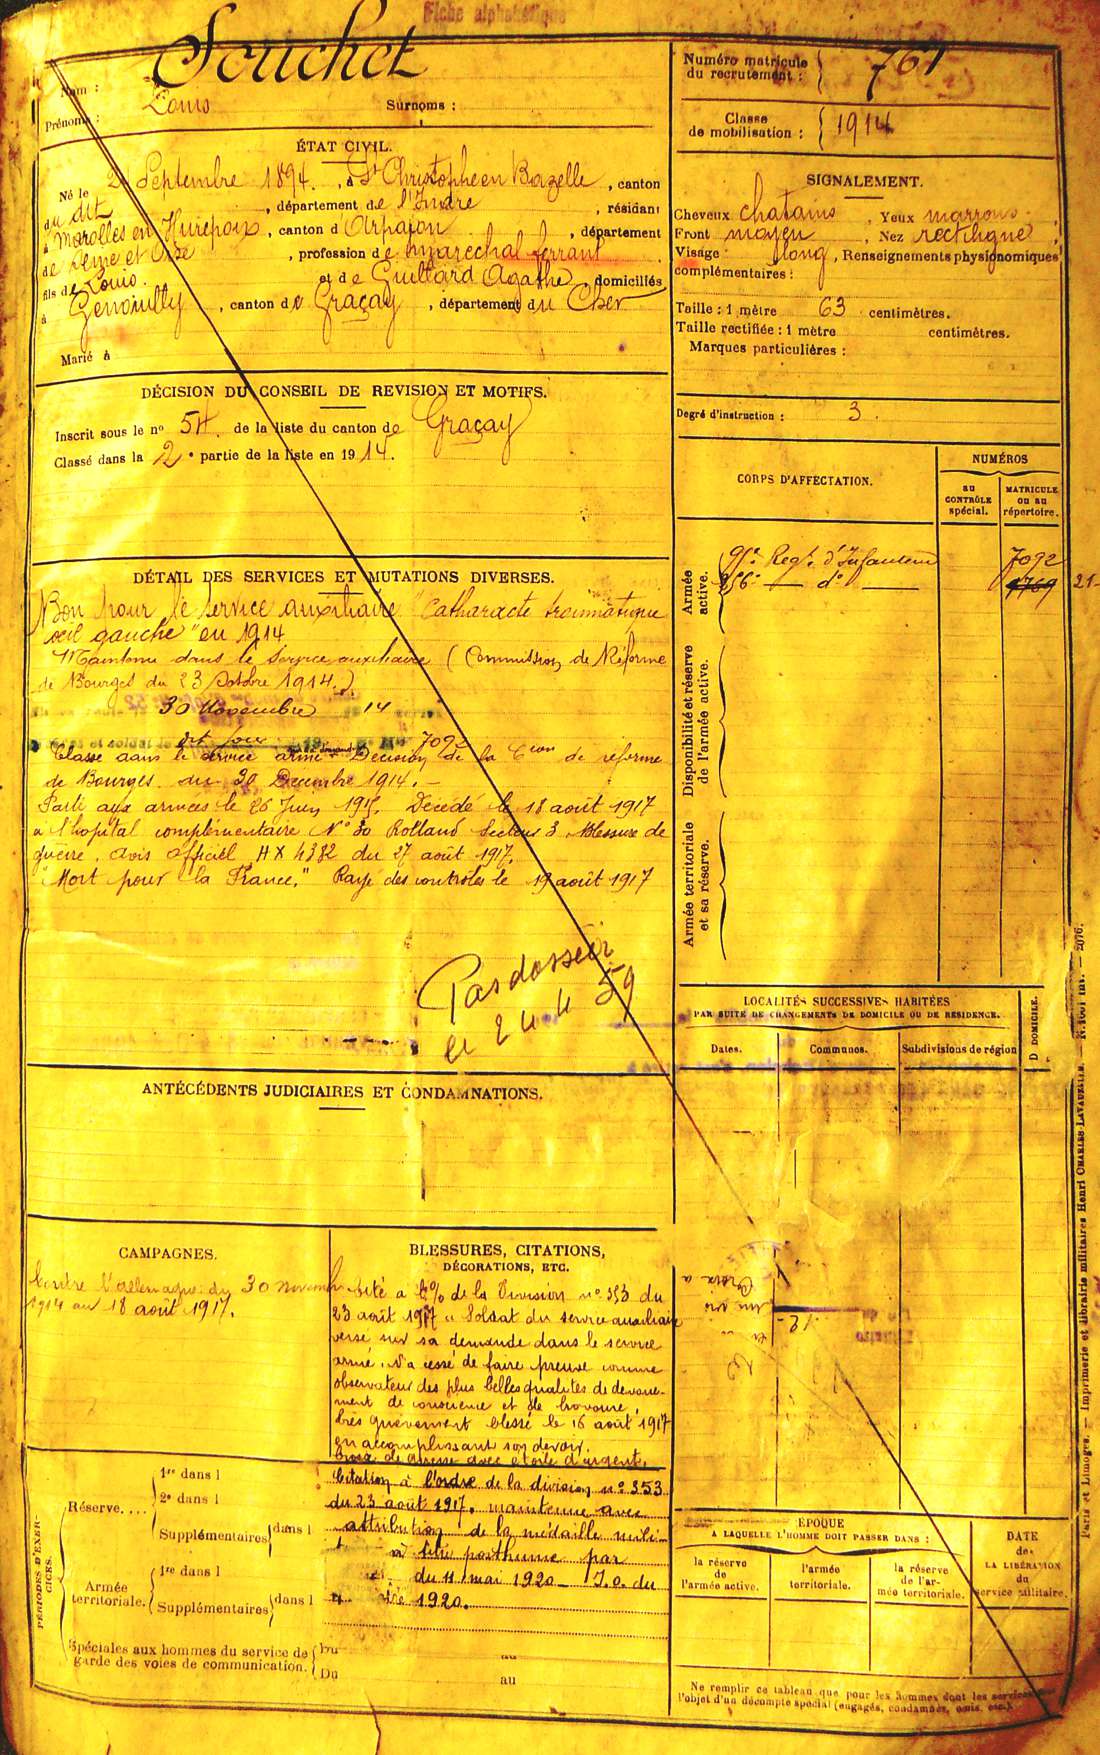 Fiche alphabétique
Souchet
Nom :
Louis
Prénoms :
Surnoms :
Numéro matricule
du recrutement : 761
Classe
de mobilisation : 1914
ÉTAT CIVIL.
Né le 2 Septembre 1894, à St Christophe en Bazelle, canton
du dit, département de l'Indre, résidant
à Marolles en Hurepoix, canton d'Arpajon, département
de Seine et Oise, profession de marechal ferrant
fils de Louis et de Guillard Agathe, domiciliés
à Genouilly, canton de Graçay, département du Cher
Marié à
SIGNALEMENT.
Cheveux chatains, Yeux marrons
Front moyen, Nez rectiligne
Visage long, Renseignements physionomiques
complémentaires :
Taille : 1 mètre 63 centimètres.
Taille rectifiée : 1 mètre centimètres.
Marques particulières :
Degré d'instruction : 3.
DÉCISION DU CONSEIL DE REVISION ET MOTIFS.
Inscrit sous le no 54 de la liste du canton de Graçay
Classé dans la 2e partie de la liste en 1914.
DÉTAIL DES SERVICES ET MUTATIONS DIVERSES.
Bon pour le service auxiliaire "Catharacte traumatique
oeil gauche" en 1914
Maintenu dans le service auxiliaire (Commission de Réforme
de Bourges du 23 Octobre 1914.)
30 Novembre 14
dit jour 7092
Classé dans le service armé Decision de la Cion de réforme
de Bourges du 30 Decembre 1914.
Parti aux armées le 26 Juin 1915. Décédé le 18 août 1917
à l'hopital complémentaire No 30 Rolland Secteur 3 Blessure de
guerre. Avis officiel HX 4382 du 27 août 1917.
"Mort pour la France." Rayé des controles le 19 août 1917
Pas dossier
le 24 4 59
CORPS D'AFFECTATION.
NUMÉROS
au
CONTRÔLE
spécial.
MATRICULE
ou au
répertoire.
Armée
active.
95e Regt d'Infanterie 7092
256e — do — 4769 21-
Disponibilité et réserve
de l'armée active.
Armée territoriale
et sa réserve.
LOCALITÉS SUCCESSIVES HABITÉES
PAR SUITE DE CHANGEMENTS DE DOMICILE OU DE RÉSIDENCE.
Dates.
Communes.
Subdivisions de région
D DOMICILE.
ANTÉCÉDENTS JUDICIAIRES ET CONDAMNATIONS.
CAMPAGNES.
Contre l'allemagne du 30 novembre
1914 au 18 août 1917.
BLESSURES, CITATIONS,
DÉCORATIONS, ETC.
Cité à l'O/ de la Division no 353 du
23 août 1917 "Soldat du service auxiliaire
versé sur sa demande dans le service
armé. N'a cessé de faire preuve comme
observateur des plus belles qualités de dévoue-
ment de conscience et de bravoure.
Très grièvement blessé le 16 août 1917
en accomplissant son devoir.
Croix de guerre avec étoile d'argent.
Citation à l'ordre de la division no 353
du 23 août 1917, maintenue avec
attribution de la médaille mili-
à titre posthume par
du 11 mai 1920 - J.O. du
1920.
PÉRIODES D'EXER-
CICES.
Réserve....
1re dans l
2e dans l
Supplémentaires dans l
Armée
territoriale.
1re dans l
Supplémentaires dans l
Spéciales aux hommes du service de
garde des voies de communication.
Du
Du
au
ÉPOQUE
A LAQUELLE L'HOMME DOIT PASSER DANS :
la réserve
de
l'armée active.
l'armée
territoriale.
la réserve
de l'ar-
mée territoriale.
DATE
de
LA LIBÉRATION
du
service militaire.
Ne remplir ce tableau que pour les hommes dont les services
l'objet d'un décompte spécial (engagés, condamnés, omis, etc.)
Paris et Limoges. — Imprimerie et librairie militaires Henri CHARLES-LAVAUZELLE. — N. 1001 int. — 2076.